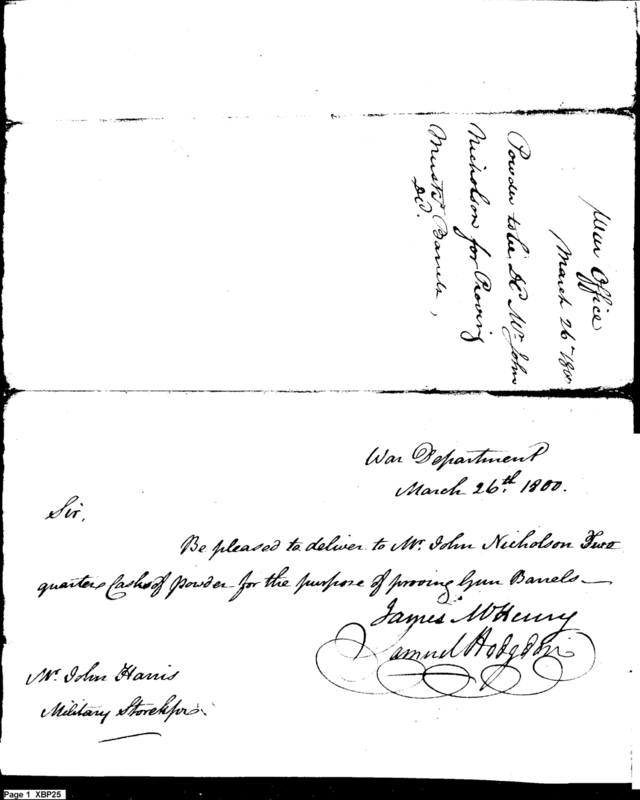 War Office
March 26th 1800
Powder to be Dd Mr. John
Nicholson for Proving
Muskt Barrels,
Dd.
War Department
March 26th. 1800.
Sir,
Be pleased to deliver to Mr. John Nicholson Two
quarter Casks of powder for the purpose of proving Gun Barrels—
James McHenry
Samuel Hodgdon
Mr. John Harris
Military Storekpr.
Page 1 XBP25